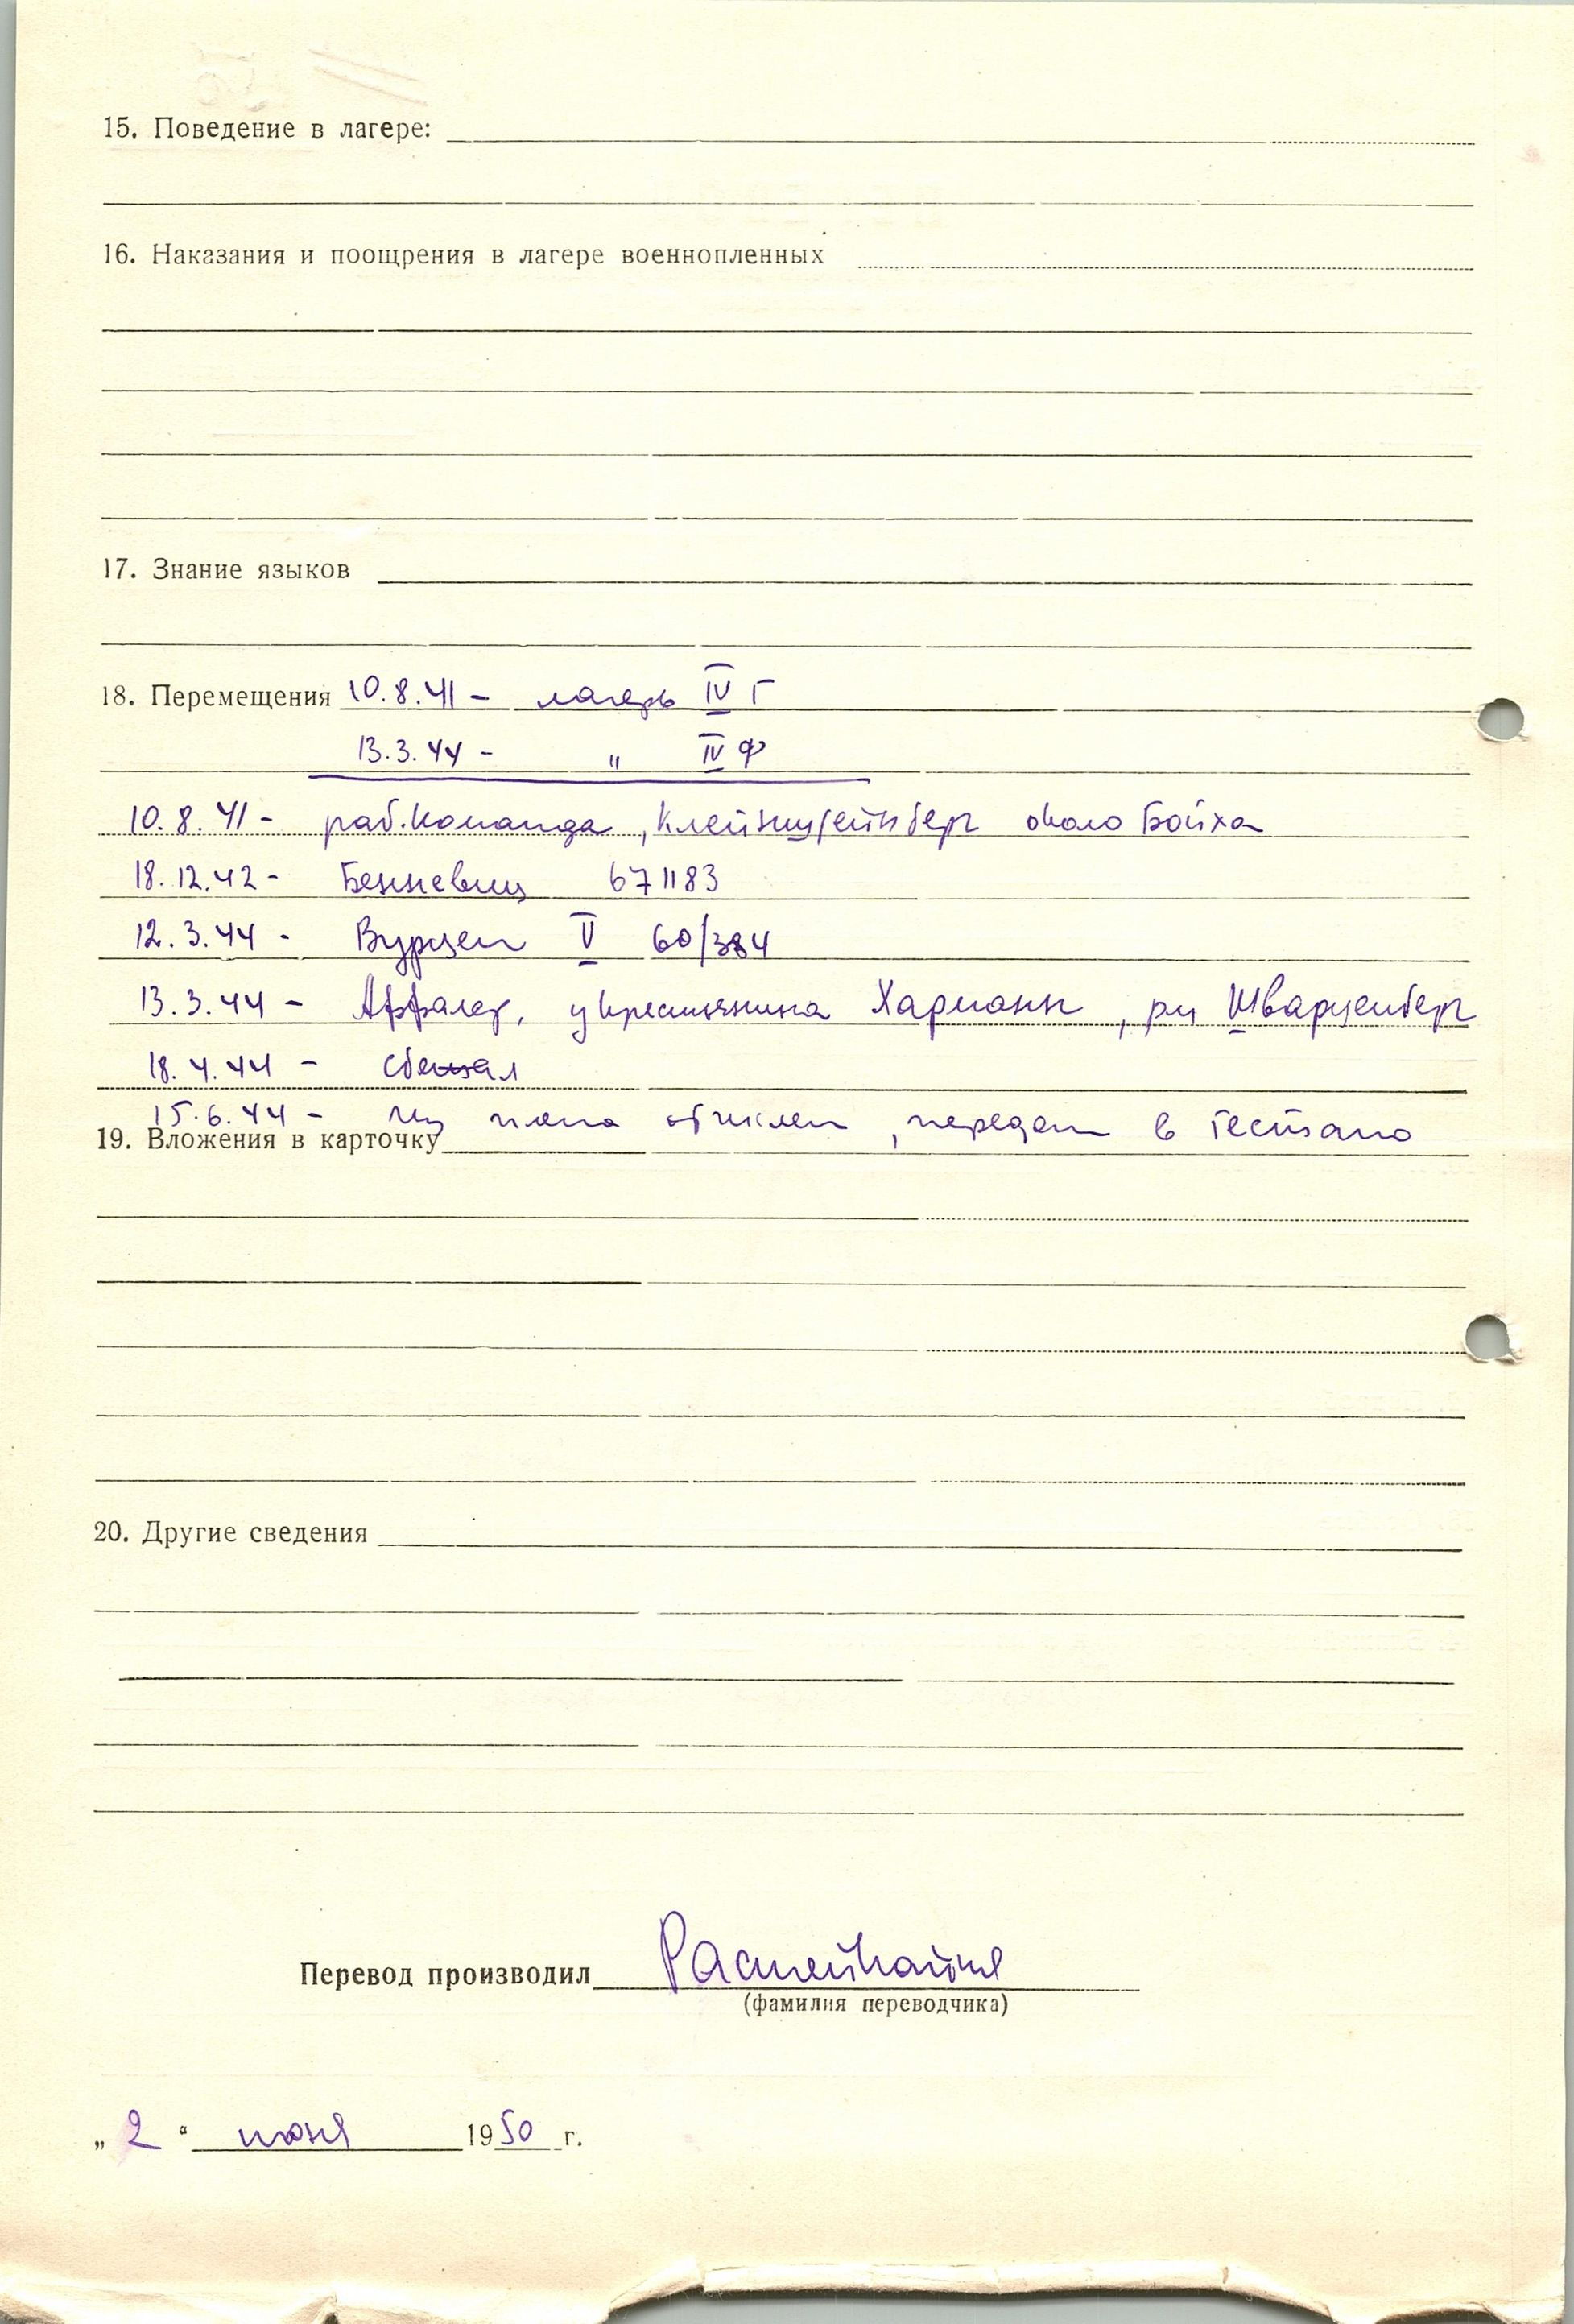 15. Поведение в лагере:
16. Наказания и поощрения в лагере военнопленных
17. Знание языков
18. Перемещения 10.8.41 - лагерь IV Г
13.3.44 - " IV Ф
10.8.41 - раб. команда, Клейнштейнберг около Бойха
18.12.42 - Бенневиц 671183
12.3.44 - Вурцен V 60/384
13.3.44 - Аффалер, у крестьянина Харманн, рн Шварценберг
18.4.44 - сбежал
15.6.44 - Из плена отчислен, передан в гестапо
19. Вложения в карточку
20. Другие сведения
Перевод производил
(фамилия переводчика)
„ 2 “ июня 1950 г.